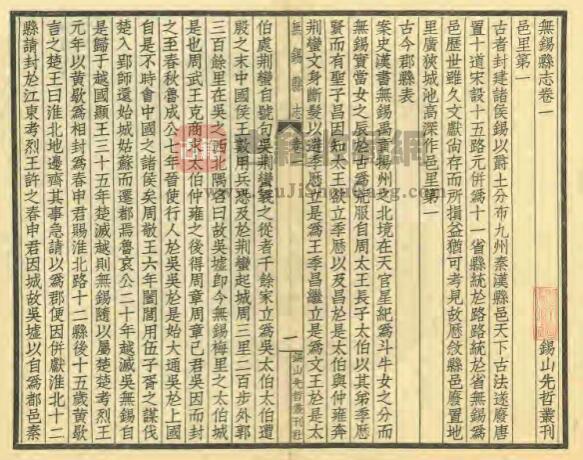 無錫縣志卷一
錫山先哲叢刊
邑里第一
古者封建諸侯錫以爵土分布九州秦漢縣邑天下古法遂廢唐
置十道宋設十五路元併爲十一省縣統於路路統於省無錫爲
邑歷世雖久文獻尙存而所損益猶可考見故歷敘縣邑廢置地
里廣狹城池高深作邑里第一
古今郡縣表
案史漢書無錫禹貢揚州之北境在天官星紀爲斗牛女之分而
無錫實當女之辰於古爲荒服自周太王長子太伯以其弟季歷
賢而有聖子昌因知太王欲立季歷以及昌於是太伯與仲雍奔
荆蠻文身斷髮以遜季歷立是爲王季昌繼立是爲文王於是太
無錫縣志
卷一
一
錫山先哲叢刊社
伯處荆蠻自號句吳荆蠻義之從者千餘家立爲吳太伯太伯遭
殷之末中國侯王數用兵恐及於荆蠻起城周三里二百步外郭
三百餘里在吳之西北隅名曰故吳墟卽今無錫梅里之太伯城
是也周武王克商求太伯仲雍之後得周章周章已君吳因而封
之至春秋魯成公七年晉使行人於吳吳於是始大通吳於上國
自是不時會中國之諸侯矣周敬王六年闔閭用伍子胥之謀伐
楚入郢師還始城姑蘇而遷都焉魯哀公二十年越滅吳無錫自
是歸于越國顯王三十五年楚滅越則無錫隨以屬楚楚考烈王
元年以黄歇爲相封爲春申君賜淮北路十二縣後十五歲黄歇
言之楚王曰淮北地邊齊其事急請以爲郡便因併獻淮北十二
縣請封於江東考烈王許之春申君因城故吳墟以自爲都邑秦